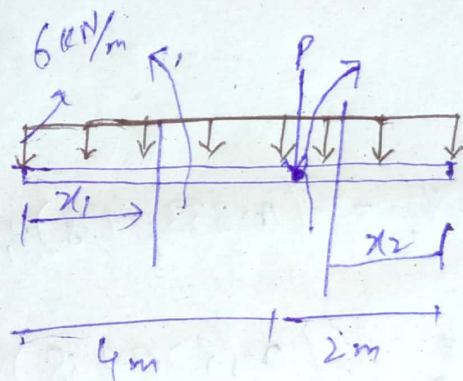 6 kN/m
P
x1
x2
4m
2m